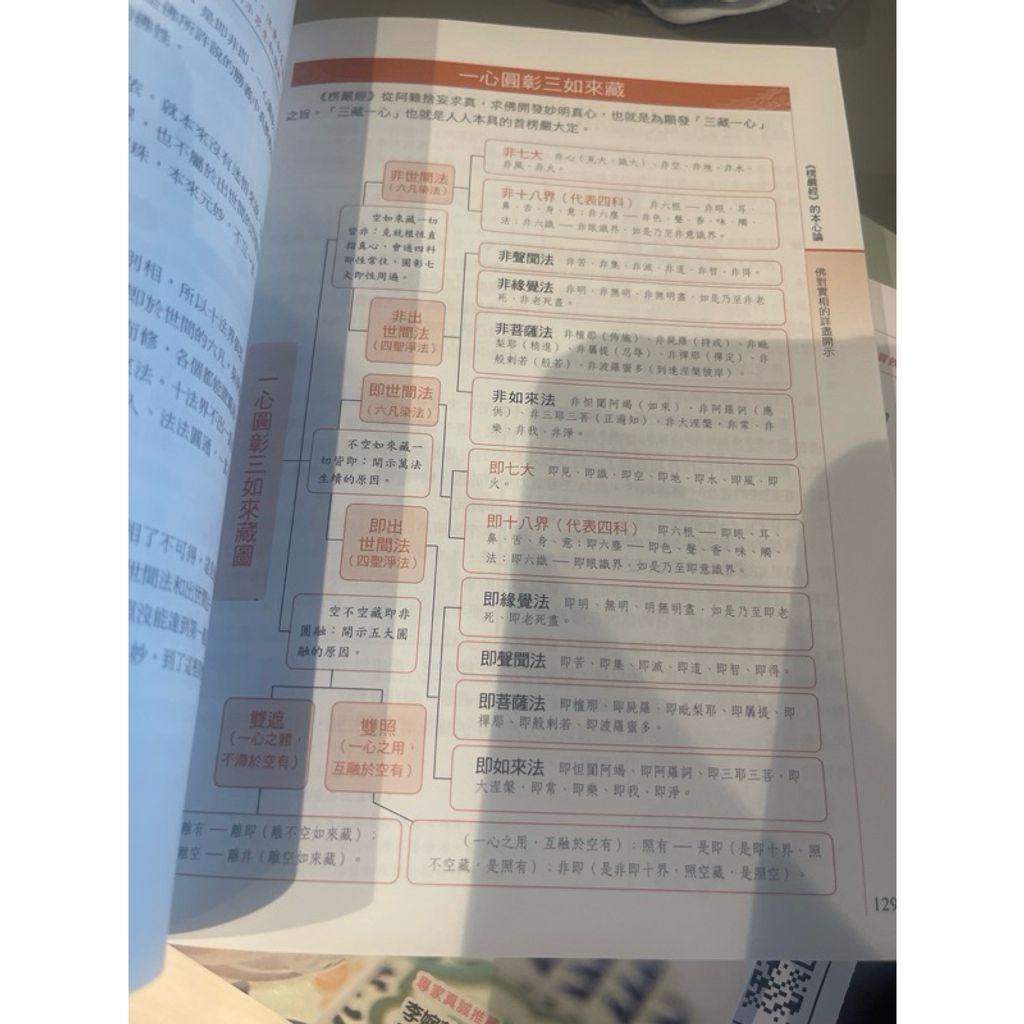 一心圓彰三如來藏
《楞嚴經》從阿難捨妄求真，求佛開發妙明真心，也就是為顯發「三藏一心」
之旨。「三藏一心」也就是人人本具的首楞嚴大定。
一心圓彰三如來藏圖
非世間法
（六凡染法）
空如來藏一切
皆非：克就根性直
指真心，會通四科
即性常住，圓彰七
大即性周遍。
非出
世間法
（四聖淨法）
即世間法
（六凡染法）
不空如來藏一
切皆即：開示萬法
生續的原因。
即出
世間法
（四聖淨法）
空不空藏即非
圓融：開示五大圓
融的原因。
雙遮
（一心之體，
不滯於空有）
雙照
（一心之用，
互融於空有）
非七大　非心（見大、識大）、非空、非地、非水、
非風、非火。
非十八界（代表四科）　非六根──非眼、耳、
鼻、舌、身、意；非六塵──非色、聲、香、味、觸、
法；非六識──非眼識界，如是乃至非意識界。
非聲聞法　非苦、非集、非滅、非道、非智、非得。
非緣覺法　非明、非無明、非無明盡，如是乃至非老
死、非老死盡。
非菩薩法　非檀那（佈施）、非屍羅（持戒）、非毗
梨耶（精進）、非羼提（忍辱）、非禪那（禪定）、非
般剌若（般若）、非波羅蜜多（到達涅槃彼岸）。
非如來法　非怛闥阿竭（如來）、非阿羅訶（應
供）、非三耶三菩（正遍知）、非大涅槃，非常、非
樂、非我、非淨。
即七大　即見、即識、即空、即地、即水、即風、即
火。
即十八界（代表四科）　即六根──即眼、耳、
鼻、舌、身、意；即六塵──即色、聲、香、味、觸、
法；即六識──即眼識界，如是乃至即意識界。
即緣覺法　即明、無明、明無明盡，如是乃至即老
死、即老死盡。
即聲聞法　即苦、即集、即滅、即道、即智、即得。
即菩薩法　即檀那、即屍羅、即毗梨耶、即羼提、即
禪那、即般剌若、即波羅蜜多。
即如來法　即怛闥阿竭、即阿羅訶、即三耶三菩、即
大涅槃，即常、即樂、即我、即淨。
離有──離即（離不空如來藏）；
離空──離非（離空如來藏）。
（一心之用，互融於空有）：照有──是即（是即十界，照
不空藏，是照有）；非即（是非即十界，照空藏，是照空）。
《楞嚴經》的本心論
佛對實相的詳盡開示
129
專家真誠推